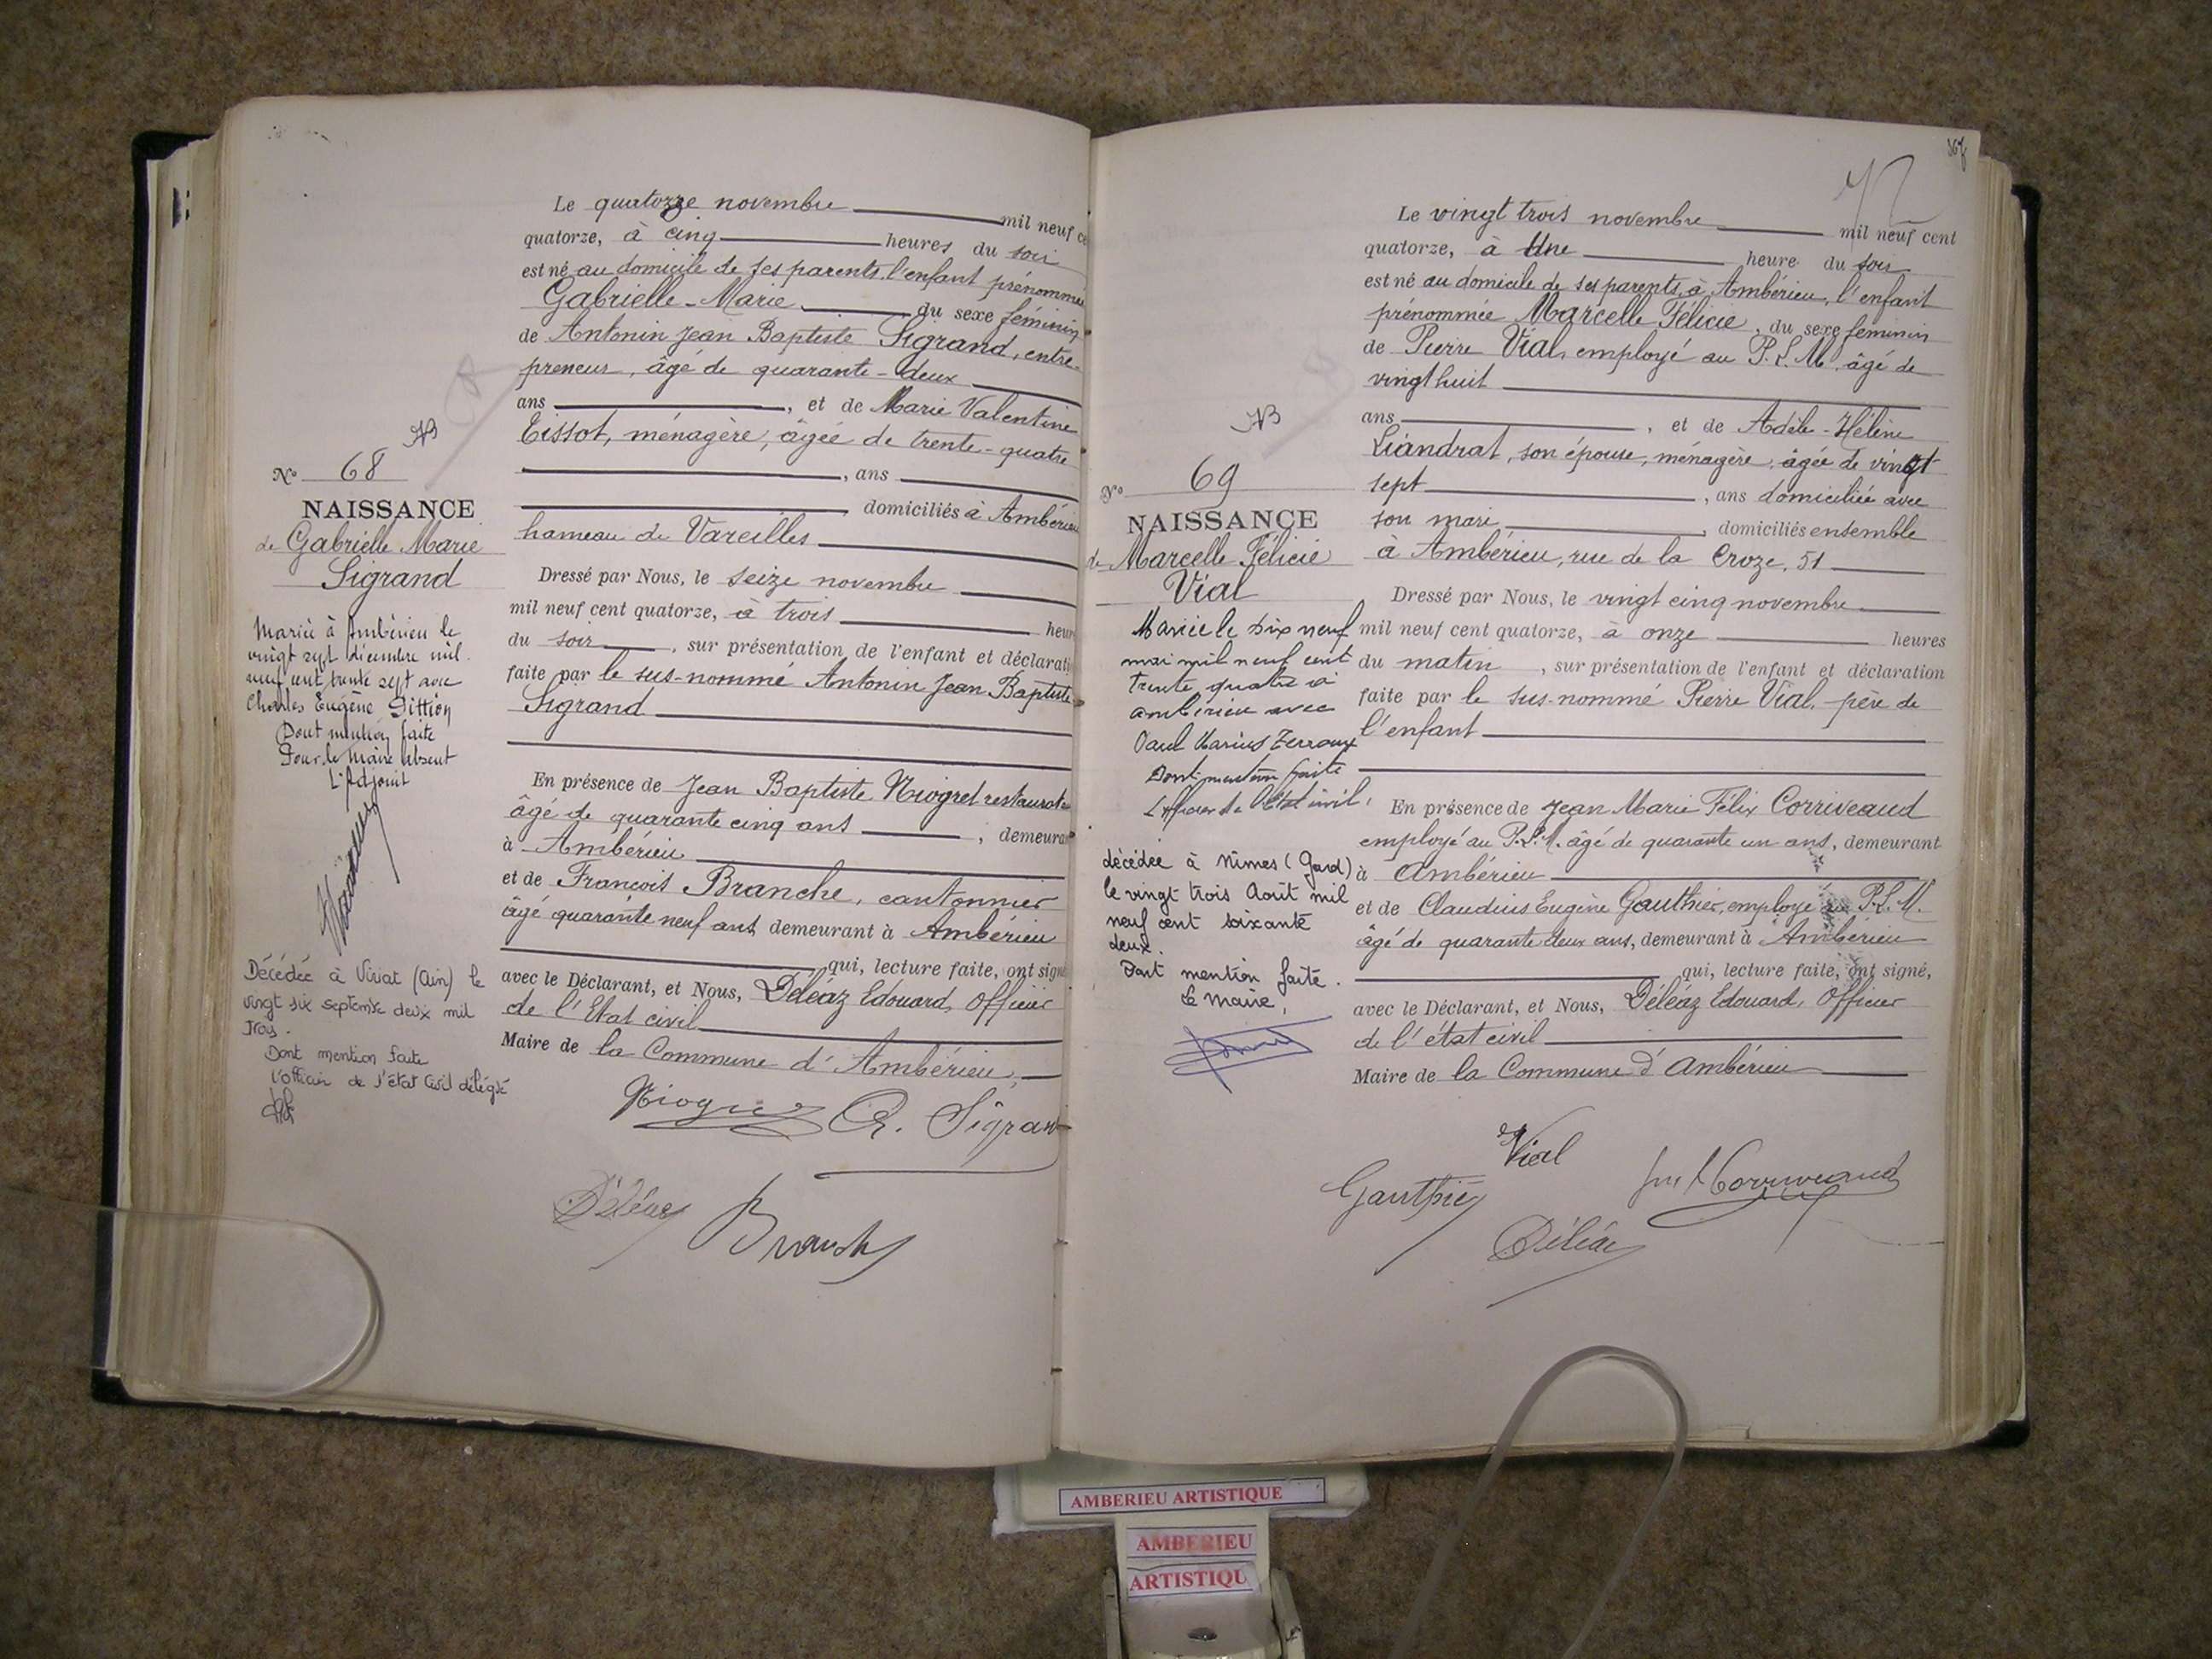 Le quatorze novembre mil neuf ce
quatorze, à cinq heures du soir
est né au domicile de ses parents, l'enfant prénommée
Gabrielle-Marie du sexe féminin
de Antonin Jean Baptiste Sigrand, entre-
preneur, âgé de quarante-deux
ans, et de Marie Valentine
Tissot, ménagère, âgée de trente-quatre
, ans
domiciliés à Ambérieu
hameau de Vareilles
Dressé par Nous, le seize novembre
mil neuf cent quatorze, à trois heur
du soir, sur présentation de l'enfant et déclarati
faite par le sus-nommé Antonin Jean Baptiste
Sigrand
En présence de Jean Baptiste Niogret restaurat
âgé de quarante cinq ans, demeuran
à Ambérieu
et de François Branche, cantonnier
âgé quarante neuf ans, demeurant à Ambérieu
qui, lecture faite, ont signé
avec le Déclarant, et Nous, Déléaz Edouard, Officier
de l'Etat civil
Maire de la Commune d'Ambérieu
Niogret A. Sigrand
Déléaz Branche
N° 68
NAISSANCE
de Gabrielle Marie
Sigrand
Mariée à Ambérieu le
vingt sept décembre mil
neuf cent trente sept avec
Charles Eugène Dittion
Dont mention faite
Pour le Maire absent
L'Adjoint
Décédée à Viriat (Ain) le
vingt six septembre deux mil
trois.
Dont mention faite
L'officier de l'état civil délégué
Le vingt trois novembre mil neuf cent
quatorze, à Une heure du soir
est né au domicile de ses parents, à Ambérieu, l'enfant
prénommée Marcelle Félicie, du sexe féminin
de Pierre Vial, employé au P.L.M. âgé de
vingt huit
ans, et de Adèle-Hélène
Liandrat, son épouse, ménagère, âgée de vingt
sept, ans domiciliée avec
son mari, domiciliés ensemble
à Ambérieu, rue de la Croze, 51
Dressé par Nous, le vingt cinq novembre
mil neuf cent quatorze, à onze heures
du matin, sur présentation de l'enfant et déclaration
faite par le sus-nommé Pierre Vial, père de
l'enfant
En présence de Jean Marie Félix Corriveaud
employé au P.L.M. âgé de quarante un ans, demeurant
à Ambérieu
et de Claudius Eugène Gauthier, employé au P.L.M.
âgé de quarante deux ans, demeurant à Ambérieu
qui, lecture faite, ont signé,
avec le Déclarant, et Nous, Déléaz Edouard, Officier
de l'état civil
Maire de la Commune d'Ambérieu
Vial
Gauthier Corriveaud
Déléaz
N° 69
NAISSANCE
de Marcelle Félicie
Vial
Mariée le dix neuf
mai mil neuf cent
trente quatre à
Ambérieu avec
Paul Marius Terroux
Dont mention faite
L'officier de l'état civil,
décédée à Nîmes (Gard)
le vingt trois Août mil
neuf cent soixante
deux.
Dont mention faite.
Le Maire,
AMBERIEU ARTISTIQUE
AMBERIEU
ARTISTIQU